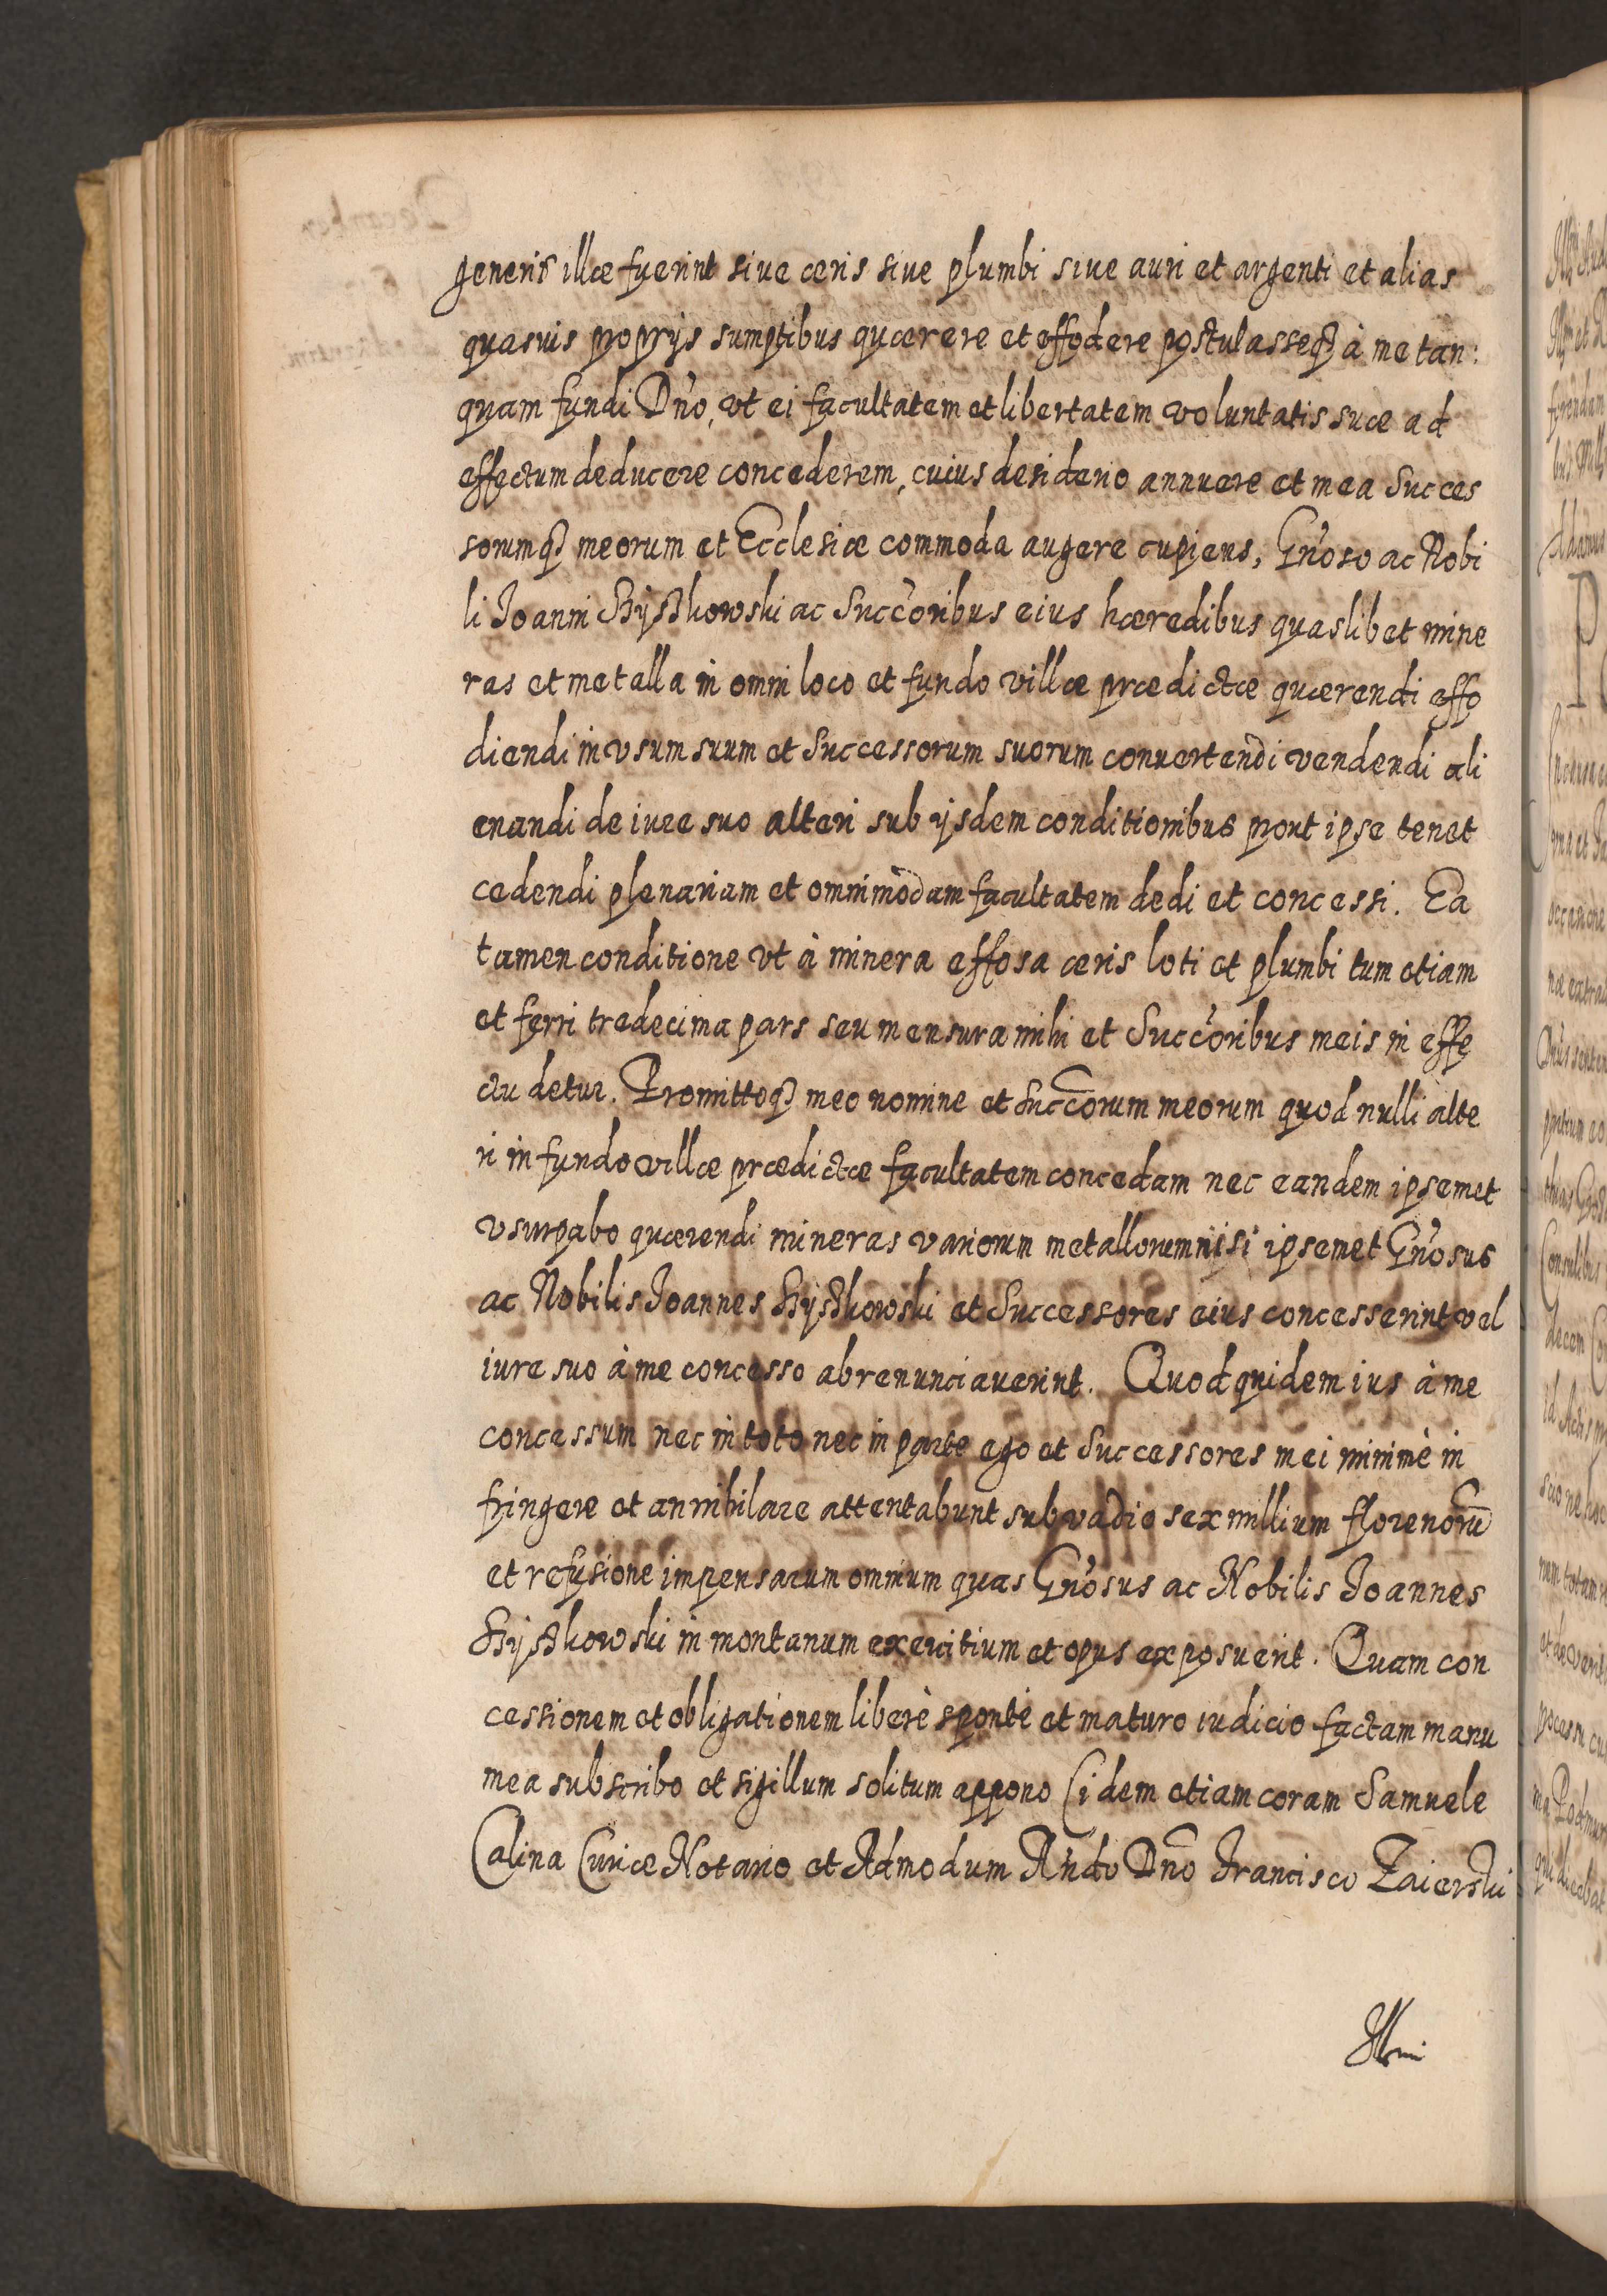 generis illæ fuerint siue æris siue plumbi siue auri et argenti et alias
quasuis proprijs sumptibus quærere et effodere postulasseq3 à me tan:
quam fundi Dño, vt ei facultatem et libertatem voluntatis suæ ad
effectum deducere concederem, cuius desiderio annuere et mea Succes
sorumq3 meorum et Ecclesiæ commoda augere cupiens, Gñoso ac Nobi
li Joanni ac Succ̃oribus eius hæredibus quaslibet mine
ras et metalla in omni loco et fundo villæ prædictæ quærendi effo
diendi in vsum suum et Successorum suorum conuertendi vendendi ali
enandi de iure suo alteri sub ijsdem conditionibus prout ipse tenet
cedendi plenariam et omnimodam facultatem dedi et concessi. Ea
tamen conditione vt à minera effosa æris loti et plumbi tum etiam
et ferri tredecima pars seu mensura mihi et Succ̃oribus meis in effe
ctu detur. Promittoq3 meo nomine et Succ̃orum meorum quod nulli alte
ri in fundo villæ prædictæ facultatem concedam nec eandem ipsemet
vsurpabo quærendi mineras variorum metallorum nisi ipsemet Gñosus
ac Nobilis Joannes et Successores eius concesserint vel
iure suo à me concesso abrenunciauerint. Quod quidem ius à me
concessum nec in toto nec in parte ego et Successores mei minimè in
fringere et annihilare attentabunt sub vadio sex millium florenorũ
et refusione impensarum omnium quas Gñosus ac Nobilis Joannes
in montanum exercitium et opus exposuerit. Quam con
cessionem et obligationem liberè spontè et maturo iudicio factam manu
mea subscribo et sigillum solitum appono Cidem etiam coram Samuele
Calina Curiæ Notario et Admodum Rñdo Dño Francisco Zaierski